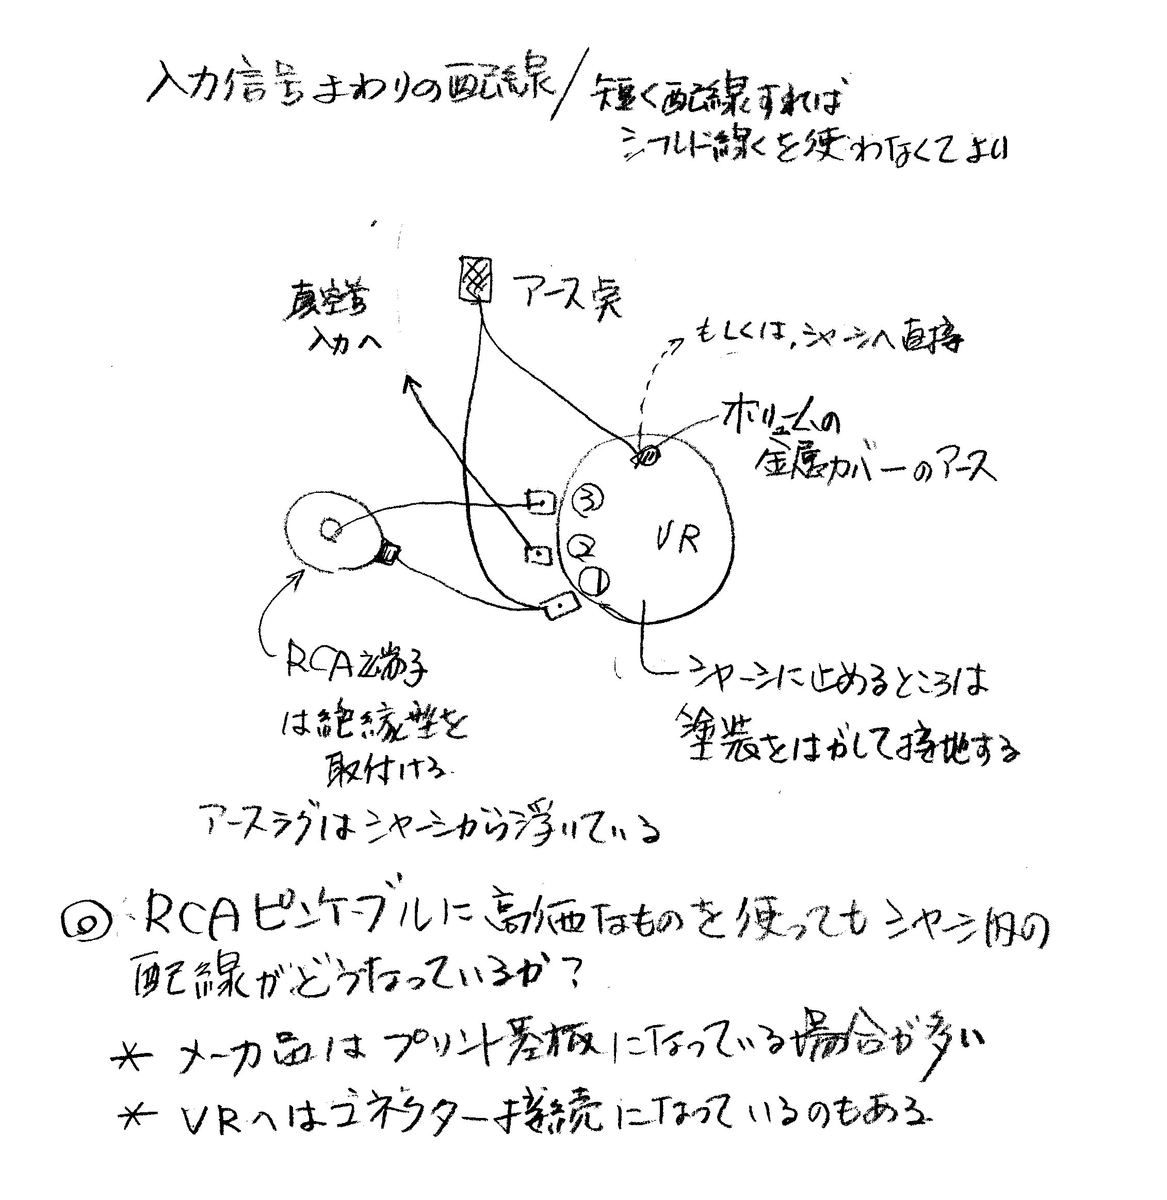 入力信号まわりの配線/短く配線すれば
シールド線くを使わなくてよい
アース点
真空管
入力へ
もしくは、シャーシへ直接
ボリュームの
金属カバーのアース
③
②
①
VR
RCA端子
は絶縁型を
取付ける
シャーシに止めるところは
塗装をはがして接地する
アースラグはシャーシから浮いている
◎ RCAピンケーブルに高価なものを使ってもシャーシ内の
配線がどうなっているか?
* メーカ品はプリント基板になっている場合が多い
* VRへはコネクター接続になっているのもある